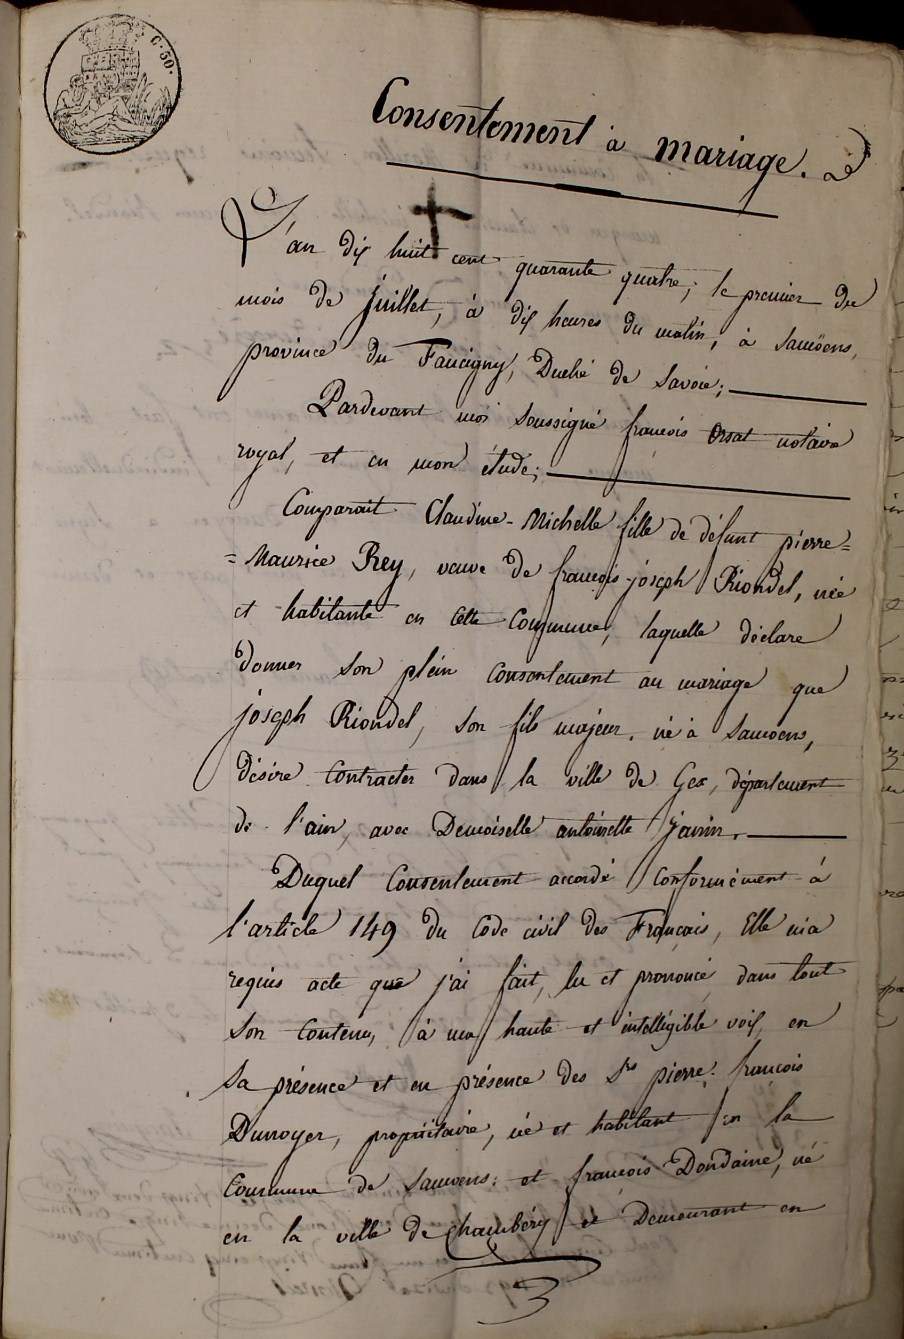 C. 50.
Consentement à mariage.
L'an dix huit cent quarante quatre; le premier du
mois de Juillet, à dix heures du matin, à Samoëns,
province du Faucigny, Duché de Savoie;
Pardevant moi soussigné françois Orsat notaire
royal, et en mon étude;
Comparait Claudine-Michelle fille de défunt pierre=
=Maurice Rey, veuve de françois-joseph Riondel, née
et habitante en cette Commune, laquelle déclare
donner son plein consentement au mariage que
joseph Riondel, son fils majeur, né à Samoens,
désire contracter dans la ville de Gex, département
de l'ain, avec Demoiselle antoinette Janin.
Duquel Consentement accordé conformément à
l'article 149 du Code civil des Français, Elle m'a
requis acte que j'ai fait, lu et prononcé dans tout
son contenu, à ma haute et intelligible voix, en
sa présence et en présence des Srs pierre françois
Dunoyer, propriétaire, né et habitant en la
Commune de Samoens; et françois Dondaine, né
en la ville de Chambéry et Demeurant en